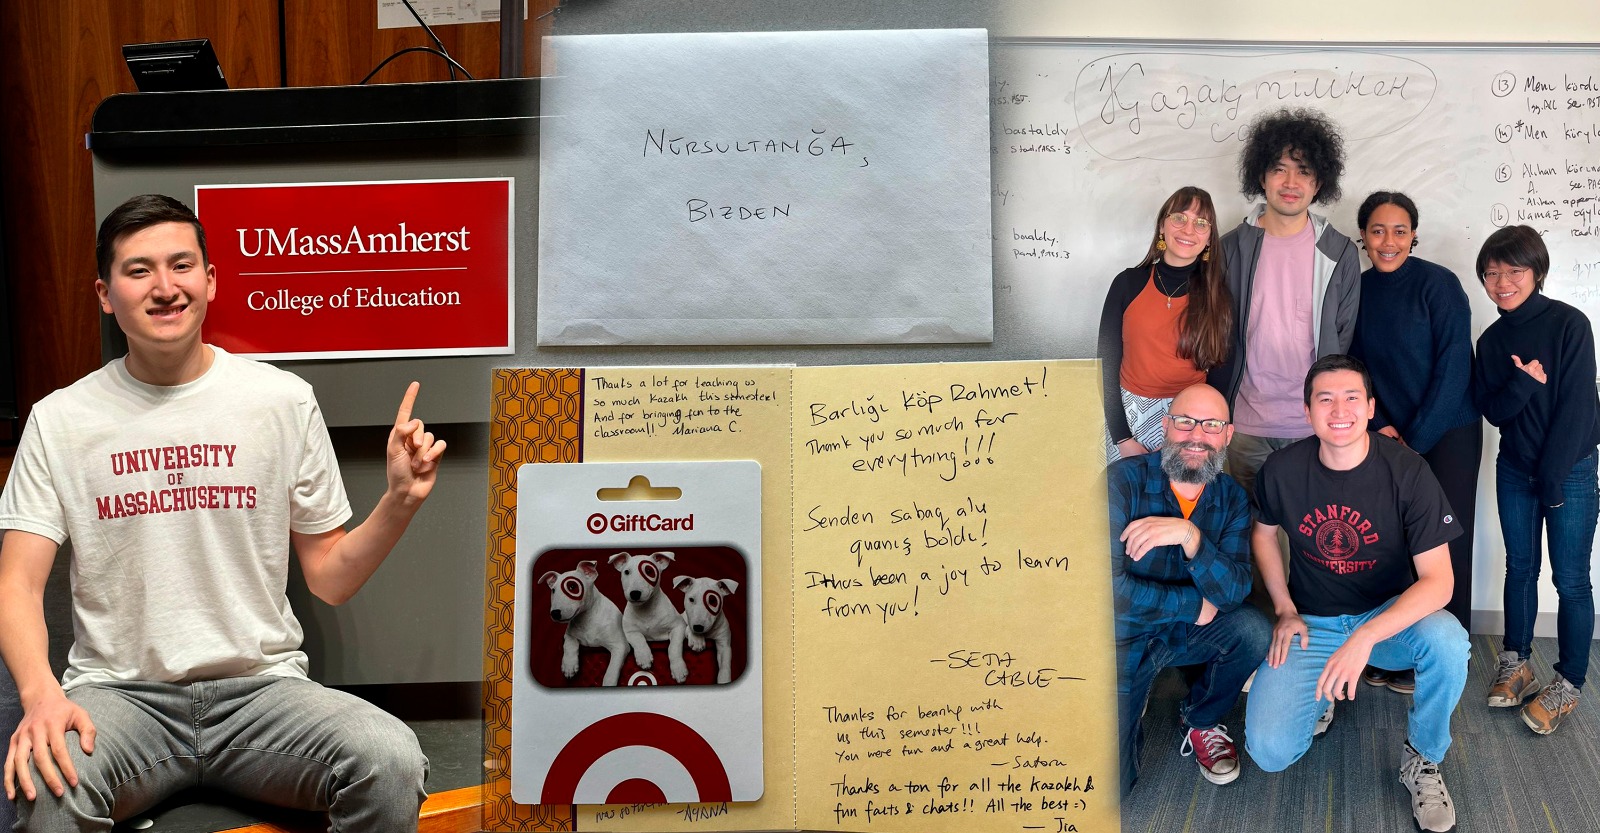 UMassAmherst
College of Education
UNIVERSITY
OF
MASSACHUSETTS
NŪRSULTANĞA,
BIZDEN
Thanks a lot for teaching us
so much Kazakh this semester!
And for bringing fun to the
classroom!! Mariana C.
GiftCard
-AYANA
Barlığı köp Rahmet!
Thank you so much for
everything!!!
Senden sabaq alu
quanış boldı!
It has been a joy to learn
from you!
-SETH
CABLE-
Thanks for bearing with
us this semester!!!
You were fun and a great help.
- Satoru
Thanks a ton for all the Kazakh &
fun facts & chats!! All the best :)
- Jia
Қазақ тілінен
bastaldy
3
boldy.
Pand.PASS.3
13 Menı kördı
1sg.ACC see.PST
14 *Men körıl
15 Alihan körın
A. see.PAS
"Alihan appear
16 Namaz oqyl
read
STANFORD
UNIVERSITY